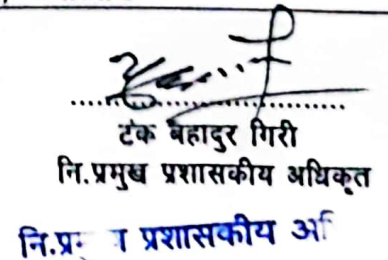 टंक बहादुर गिरी
नि.प्रमुख प्रशासकीय अधिकृत
प्रशासकीय